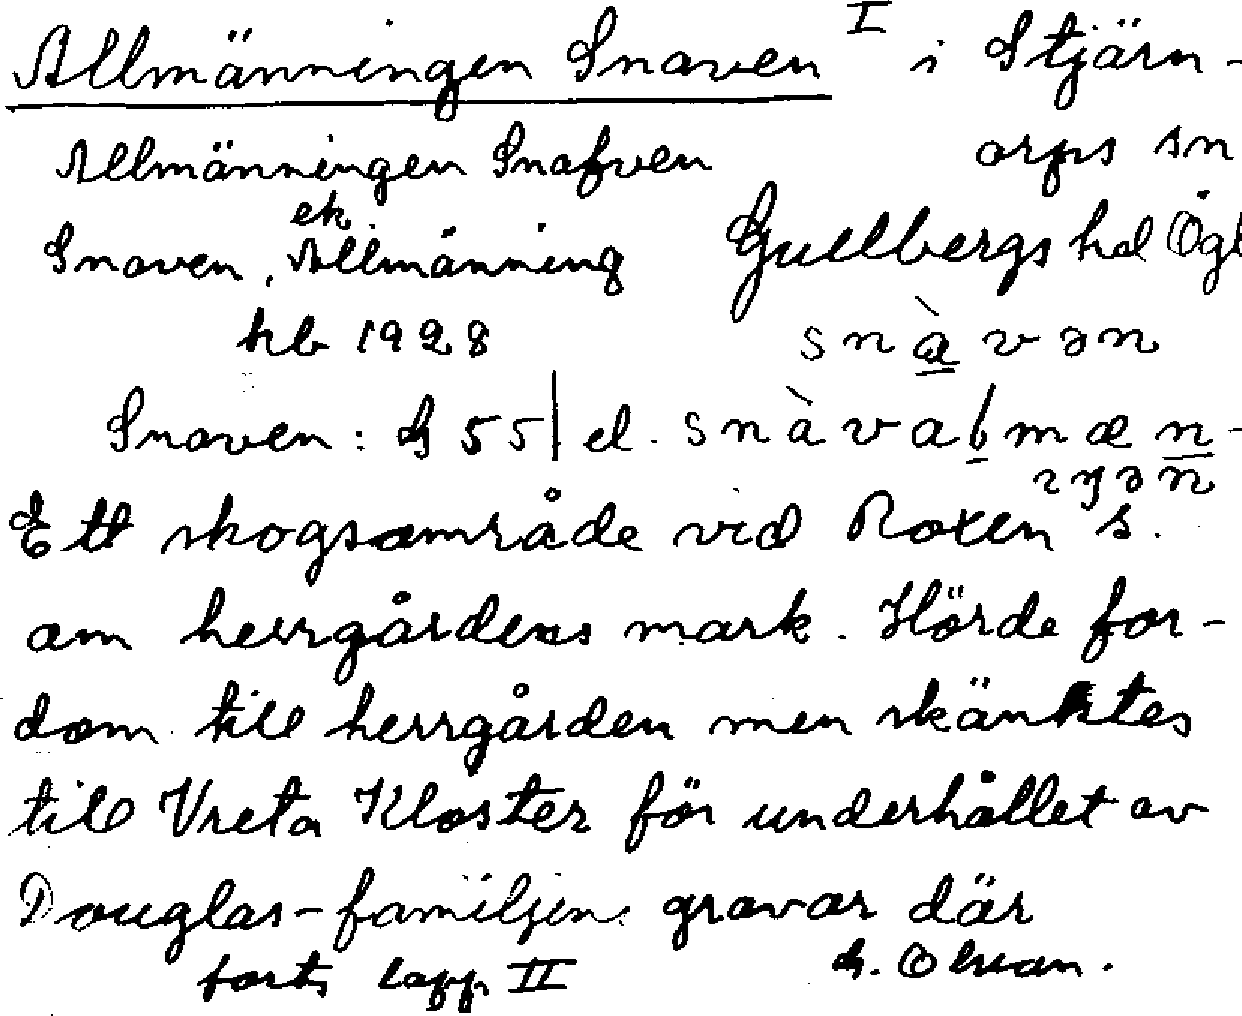 Allmänningen Snaven I i Stjärn-
Allmänningen Snafven orps sn
ek.
Snaven, Allmänning Gullbergs hd Ögl
hb 1928 snàvən
Snaven: G 55| el. snàvabmæn-
ıŋən
Ett skogsområde vid Roxen s.
om herrgårdens mark. Hörde for-
dom till herrgården men skänktes
till Vreta Kloster för underhållet av
Douglas-familjens gravar där
forts lapp II G. Olson.